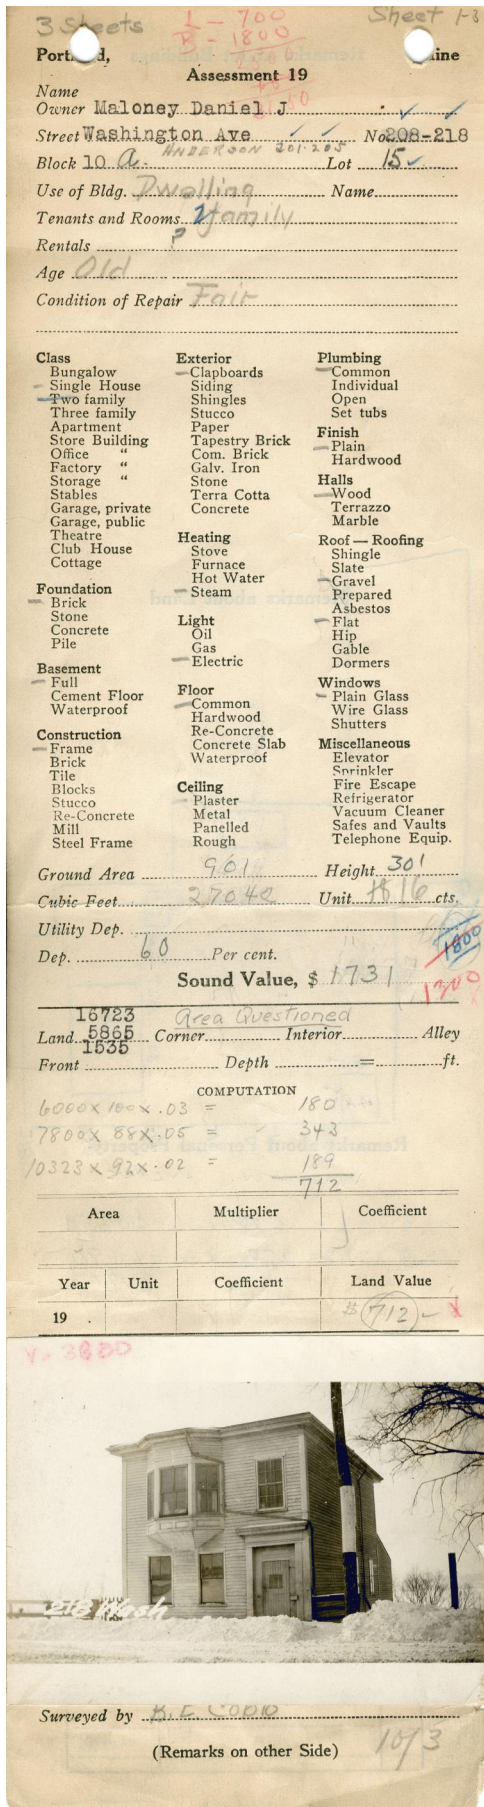 3 Sheets
Sheet 1-3
L - 700
B - 1800
Portland, Maine
Assessment 19
Name
Owner Maloney Daniel J
Street Washington Ave No. 208-218
ANDERSON 201-205
Block 10 a. Lot 15
Use of Bldg. Dwelling Name
Tenants and Rooms 2 family
Rentals ?
Age Old
Condition of Repair Fair
Class
Bungalow
Single House
Two family
Three family
Apartment
Store Building
Office "
Factory "
Storage "
Stables
Garage, private
Garage, public
Theatre
Club House
Cottage
Foundation
Brick
Stone
Concrete
Pile
Basement
Full
Cement Floor
Waterproof
Construction
Frame
Brick
Tile
Blocks
Stucco
Re-Concrete
Mill
Steel Frame
Exterior
Clapboards
Siding
Shingles
Stucco
Paper
Tapestry Brick
Com. Brick
Galv. Iron
Stone
Terra Cotta
Concrete
Heating
Stove
Furnace
Hot Water
Steam
Light
Oil
Gas
Electric
Floor
Common
Hardwood
Re-Concrete
Concrete Slab
Waterproof
Ceiling
Plaster
Metal
Panelled
Rough
Plumbing
Common
Individual
Open
Set tubs
Finish
Plain
Hardwood
Halls
Wood
Terrazzo
Marble
Roof — Roofing
Shingle
Slate
Gravel
Prepared
Asbestos
Flat
Hip
Gable
Dormers
Windows
Plain Glass
Wire Glass
Shutters
Miscellaneous
Elevator
Sprinkler
Fire Escape
Refrigerator
Vacuum Cleaner
Safes and Vaults
Telephone Equip.
Ground Area 901 Height 30'
Cubic Feet 27040 Unit 16 cts.
Utility Dep.
1800
Dep. 60 Per cent.
Sound Value, $ 1731
1300
16723 Area Questioned
Land 5865 Corner Interior Alley
1535
Front Depth = ft.
COMPUTATION
6000 x 100 x .03 = 180
7800 x 88 x .05 = 343
10323 x 92 x .02 = 189
712
Area Multiplier Coefficient
Year Unit Coefficient Land Value
19 . $ 712 -
218 Wash
Surveyed by B. E. Cobb
(Remarks on other Side)
10/3